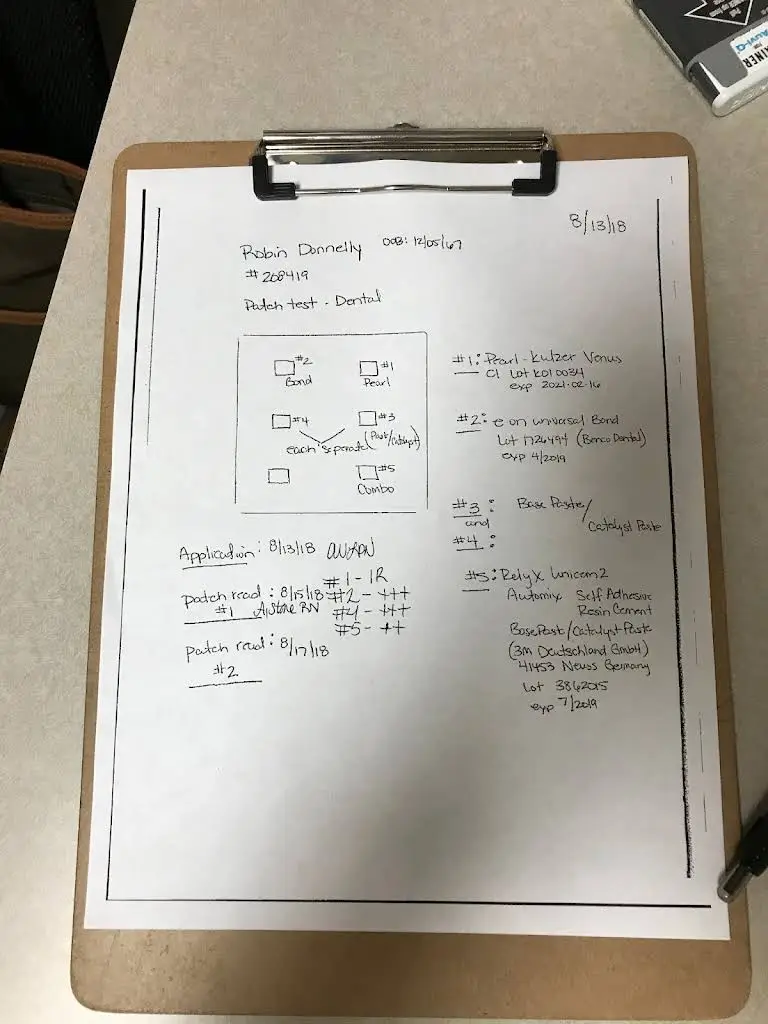 8/13/18
Robin Donnelly DOB: 12/05/67
#268419
Patch test - Dental
#2
Bond
#1
Pearl
#4
#3
(Past/Catalyst)
each separate
#5
Combo
#1: Pearl - Kulzer Venus
Lot K010034
exp 2021-02-16
#2: e on universal Bond
Lot 1726494 (Benco Dental)
exp 4/2019
#3: Base Paste/
and Catalyst Paste
#4:
#5: RelyX Unicem 2
Automix Self Adhesive
Resin Cement
Base Past/Catalyst Paste
(3M Deutschland GmbH)
41453 Neuss Germany
Lot 3862015
exp 7/2019
Application: 8/13/18
#1 - IR
patch read: 8/15/18 #2 - +++
#1 RN #4 - +++
#5 - ++
patch read: 8/17/18
#2
TRAINER
FOR
Auvi-Q